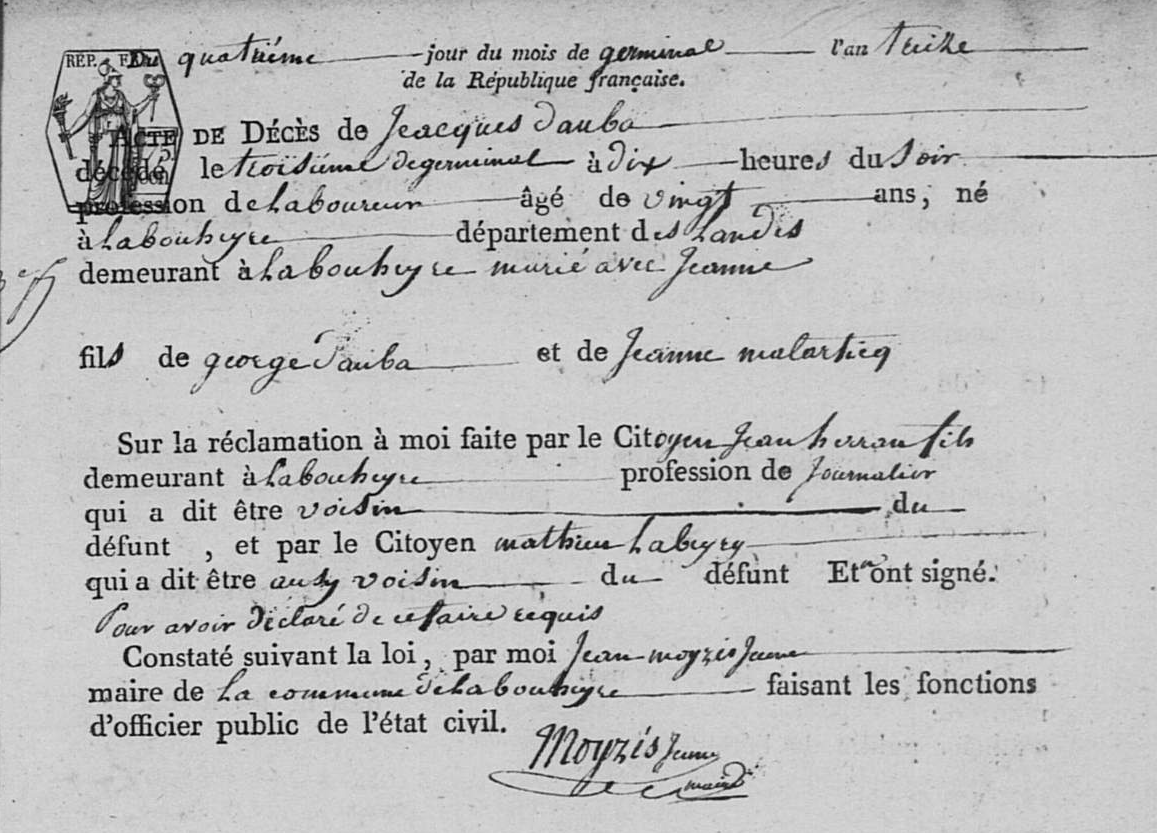 RÉP. FRA
Du quatriéme jour du mois de germinal l'an treize
de la République française.
ACTE DE DÉCÈS de Jeacques dauba
décédé le troisiéme de germinal à dix heures du soir
profession de Laboureur âgé de vingt ans, né
à Labouheyre département des Landes
demeurant à Labouheyre marié avec Jeanne
fils de george dauba et de Jeanne malarticq
Sur la réclamation à moi faite par le Citoyen Jean herran fils
demeurant à Labouheyre profession de Journalier
qui a dit être voisin du
défunt , et par le Citoyen mathieu Labeyry
qui a dit être ausy voisin du défunt Et n'ont signé.
Pour avoir déclaré de ce faire requis
Constaté suivant la loi, par moi Jean moyzis Jeune
maire de La commune de Labouheyre faisant les fonctions
d'officier public de l'état civil.
Moyzis Jeune
maire